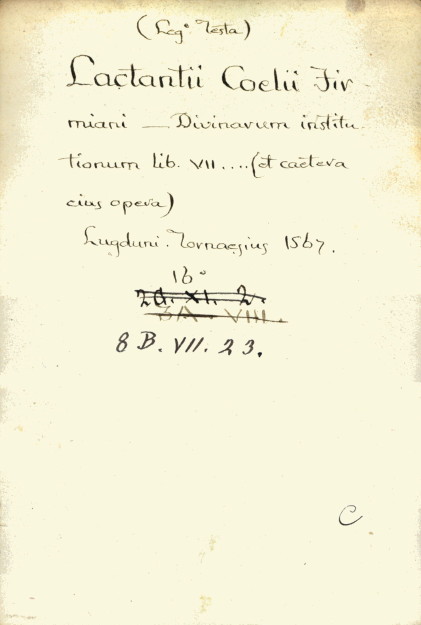 (Leg.e Testa)
Lactantii Coelii Fir-
miani — Divinarum institu-
tionum lib. VII....(et caetera
eius opera)
Lugduni. Tornaesius 1567.
16°
2A. XI. 2.
3A. VIII.
8 B. VII. 23.
C